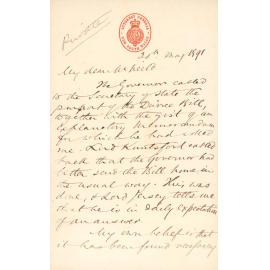 Private
20th May 1891
My dear
The Governor cabled
to the Secretary of State the
purport of the Divorce Bill,
together with the gist of an
explanatory memorandum
for which he had asked
me. Lord Knutsford cabled
back that the Governor had
better send the Bill home in
the usual way. This was
done, & Lord Jersey tells me
that he is in daily expectation
of an answer.
My own belief is that
it has been found necessary